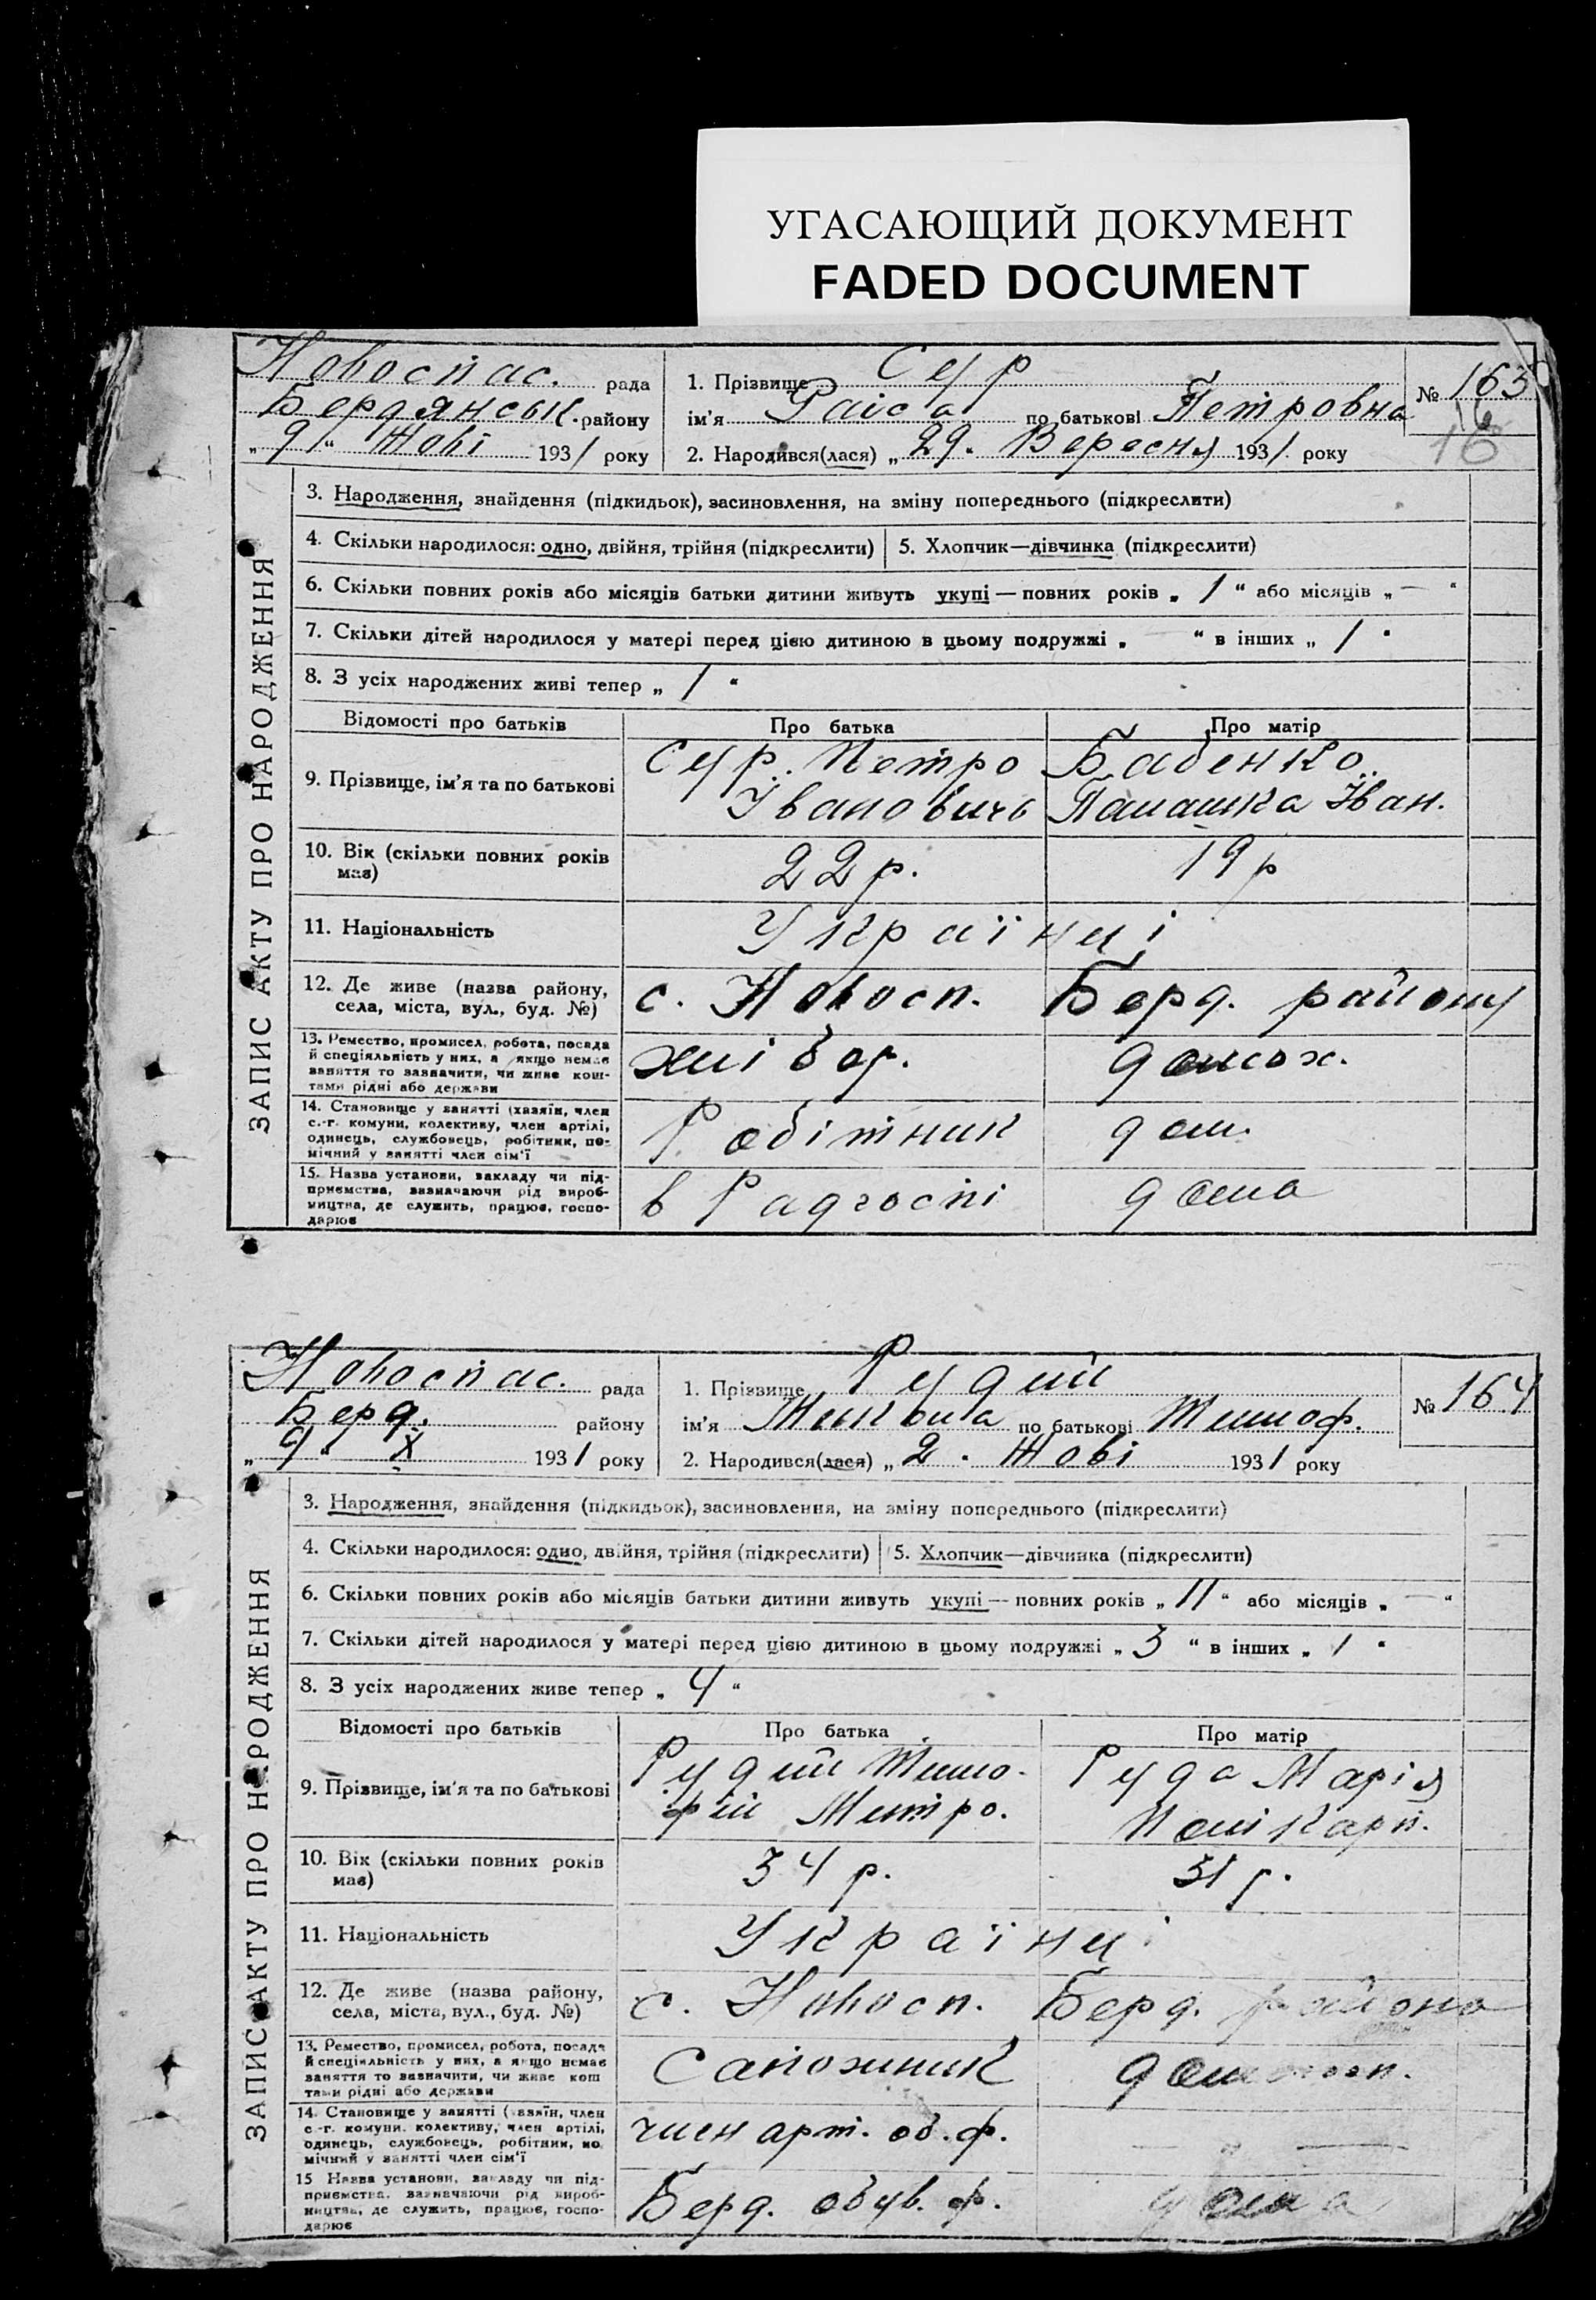 УГАСАЮЩИЙ ДОКУМЕНТ
FADED DOCUMENT
Новоспас. рада
Бердянськ. району
„ 9 " Жовт 1931 року
1. Прізвище Сур
ім'я Раїса по батькові Петровна
2. Народився(лася) „ 29. Вересня 1931 року
№ 163
16
16
ЗАПИС АКТУ ПРО НАРОДЖЕННЯ
3. Народження, знайдення (підкидьок), засиновлення, на зміну попереднього (підкреслити)
4. Скільки народилося: одно, двійня, трійня (підкреслити) 5. Хлопчик—дівчинка (підкреслити)
6. Скільки повних років або місяців батьки дитини живуть укупі — повних років „ 1 " або місяців „ — "
7. Скільки дітей народилося у матері перед цією дитиною в цьому подружжі „ — " в інших „ 1 "
8. З усіх народжених живі тепер „ 1 "
Відомості про батьків Про батька Про матір
9. Прізвище, ім'я та по батькові
Сур. Петро
Івановичь
Бабенко
Палашка Іван.
10. Вік (скільки повних років має)
22 р.
19 р
11. Національність
Українці
12. Де живе (назва району,
села, міста, вул., буд. №)
с. Новосп. Берд. району
13. Ремество, промисел, робота, посада
й спеціяльність у них, а якщо немає
заняття то зазначити, чи живе кош-
тами рідні або держави
хлібор.
домох.
14. Становище у занятті (хазяїн, член
с.-г. комуни, колективу, член артілі,
одинець, службовець, робітник, по-
мічний у занятті член сім'ї
Робітник
дом.
15. Назва установи, закладу чи під-
приємства, зазначаючи рід вироб-
ництва, де служить, працює, госпо-
дарює
в Радгоспі
дома
Новоспас. рада
Берд. району
„ 9 " X 1931 року
1. Прізвище Рудий
ім'я по батькові Тимоф.
2. Народився(лася) „ 2. Жовт 1931 року
№ 164
ЗАПИС АКТУ ПРО НАРОДЖЕННЯ
3. Народження, знайдення (підкидьок), засиновлення, на зміну попереднього (підкреслити)
4. Скільки народилося: одно, двійня, трійня (підкреслити) 5. Хлопчик—дівчинка (підкреслити)
6. Скільки повних років або місяців батьки дитини живуть укупі — повних років „ 11 " або місяців „ — "
7. Скільки дітей народилося у матері перед цією дитиною в цьому подружжі „ 3 " в інших „ 1 "
8. З усіх народжених живе тепер „ 4 "
Відомості про батьків Про батька Про матір
9. Прізвище, ім'я та по батькові
Рудий Тимо-
фій Митро.
Руда Марія
Полікарп.
10. Вік (скільки повних років
має)
34 р.
31 р.
11. Національність
Українц
12. Де живе (назва району,
села, міста, вул., буд. №)
с. Новосп. Берд. района
13. Ремество, промисел, робота, посада
й спеціяльність у них, а якщо немає
заняття то зазначити, чи живе кош
тами рідні або держави
Сапожник
14. Становище у занятті (хазяїн, член
с.-г. комуни, колективу, член артілі,
одинець, службовець, робітник, по
мічний у занятті член сім'ї
член арт. об. ф.
— " —
15 Назва установи, закладу чи під-
приємства, зазначаючи рід вироб-
ництва, де служить, працює, госпо-
дарює
Берд. обув. ф.
дома